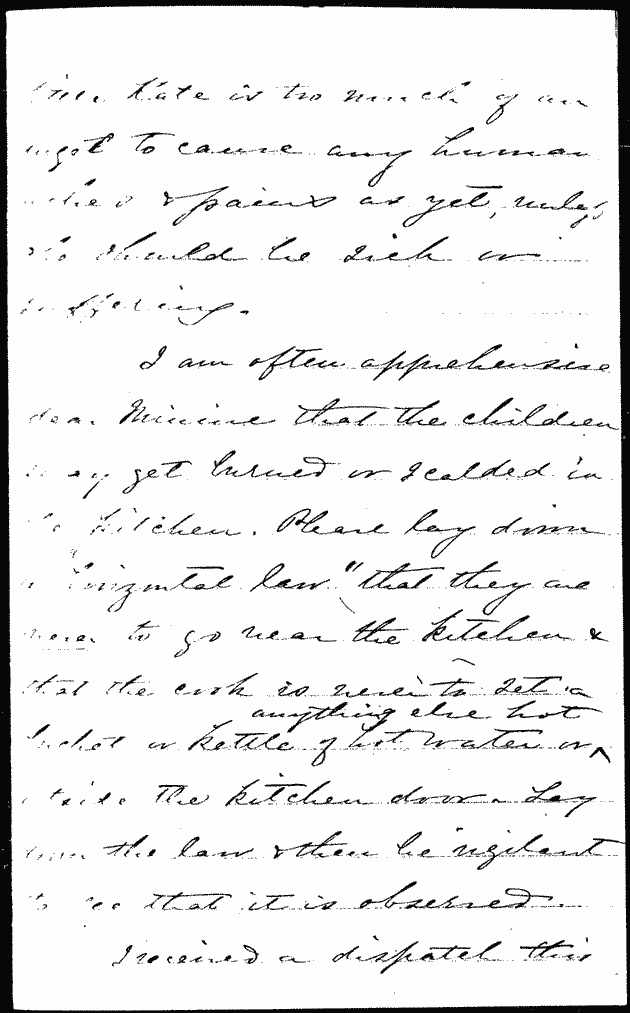 Kate is too much of an
angel to cause any human
aches & pains as yet, unless
she should be sick or
suffering.
I am often apprehensive
dear Minnie that the children
may get burned or scalded in
the kitchen. Please lay down
a "horizontal law" that they are
never to go near the kitchen &
that the cook is never to set a
bucket or kettle of hot water or
anything else hot
outside the kitchen door. Lay
down the law & then be vigilant
to see that it is observed.
I received a dispatch this